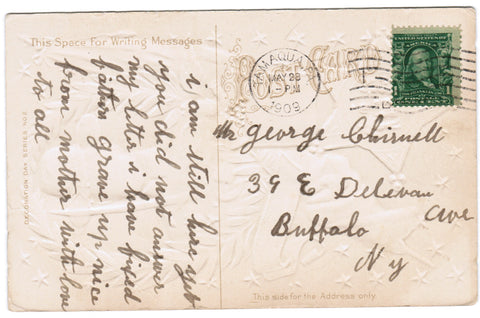 This Space For Writing Messages
POST CARD
TAMAQUA
MAY 28
-PM
1909
i am still here yet
you did not answer
my leter i have fixed
fathers grave up nice
from mother with love
to all
Mr George Chirnell
39 E Delevan
ave
Buffalo
Ny
DECORATION DAY SERIES NO 2
This side for the Address only.